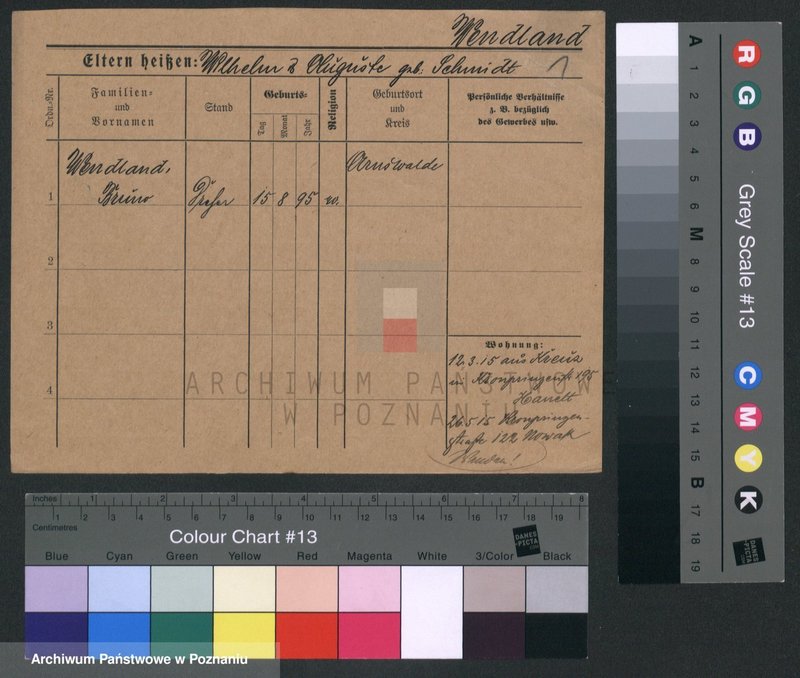 Wendland
Eltern heißen: Wilhelm u Auguste geb. Schmidt
Ordn.-Nr.
Familien-
und
Vornamen
Stand
Geburts-
Tag
Monat
Jahr
Religion
Geburtsort
und
Kreis
Persönliche Verhältnisse
z. B. bezüglich
des Gewerbes usw.
Wendland,
Arnswalde
1
Bruno
15 8 95
2
3
4
Wohnung:
12.3.15 aus Kreuz
in Kronprinzenst. 195
26.5.15 Kronprinzen-
straße 122 Nowak
ARCHIWUM PAŃSTWOWE
W POZNANIU
A 1 2 3 4 5 6 M 8 9 10 11 12 13 14 15 B 17 18 19
R G B
Grey Scale #13
C M Y K
DANES
PICTA
.COM
Inches 1 2 3 4 5 6 7 8
1 2 3 4 5 6 7 8 9 10 11 12 13 14 15 16 17 18 19
Centimetres
Colour Chart #13
DANES
PICTA
.COM
Blue Cyan Green Yellow Red Magenta White 3/Color Black
Archiwum Państwowe w Poznaniu